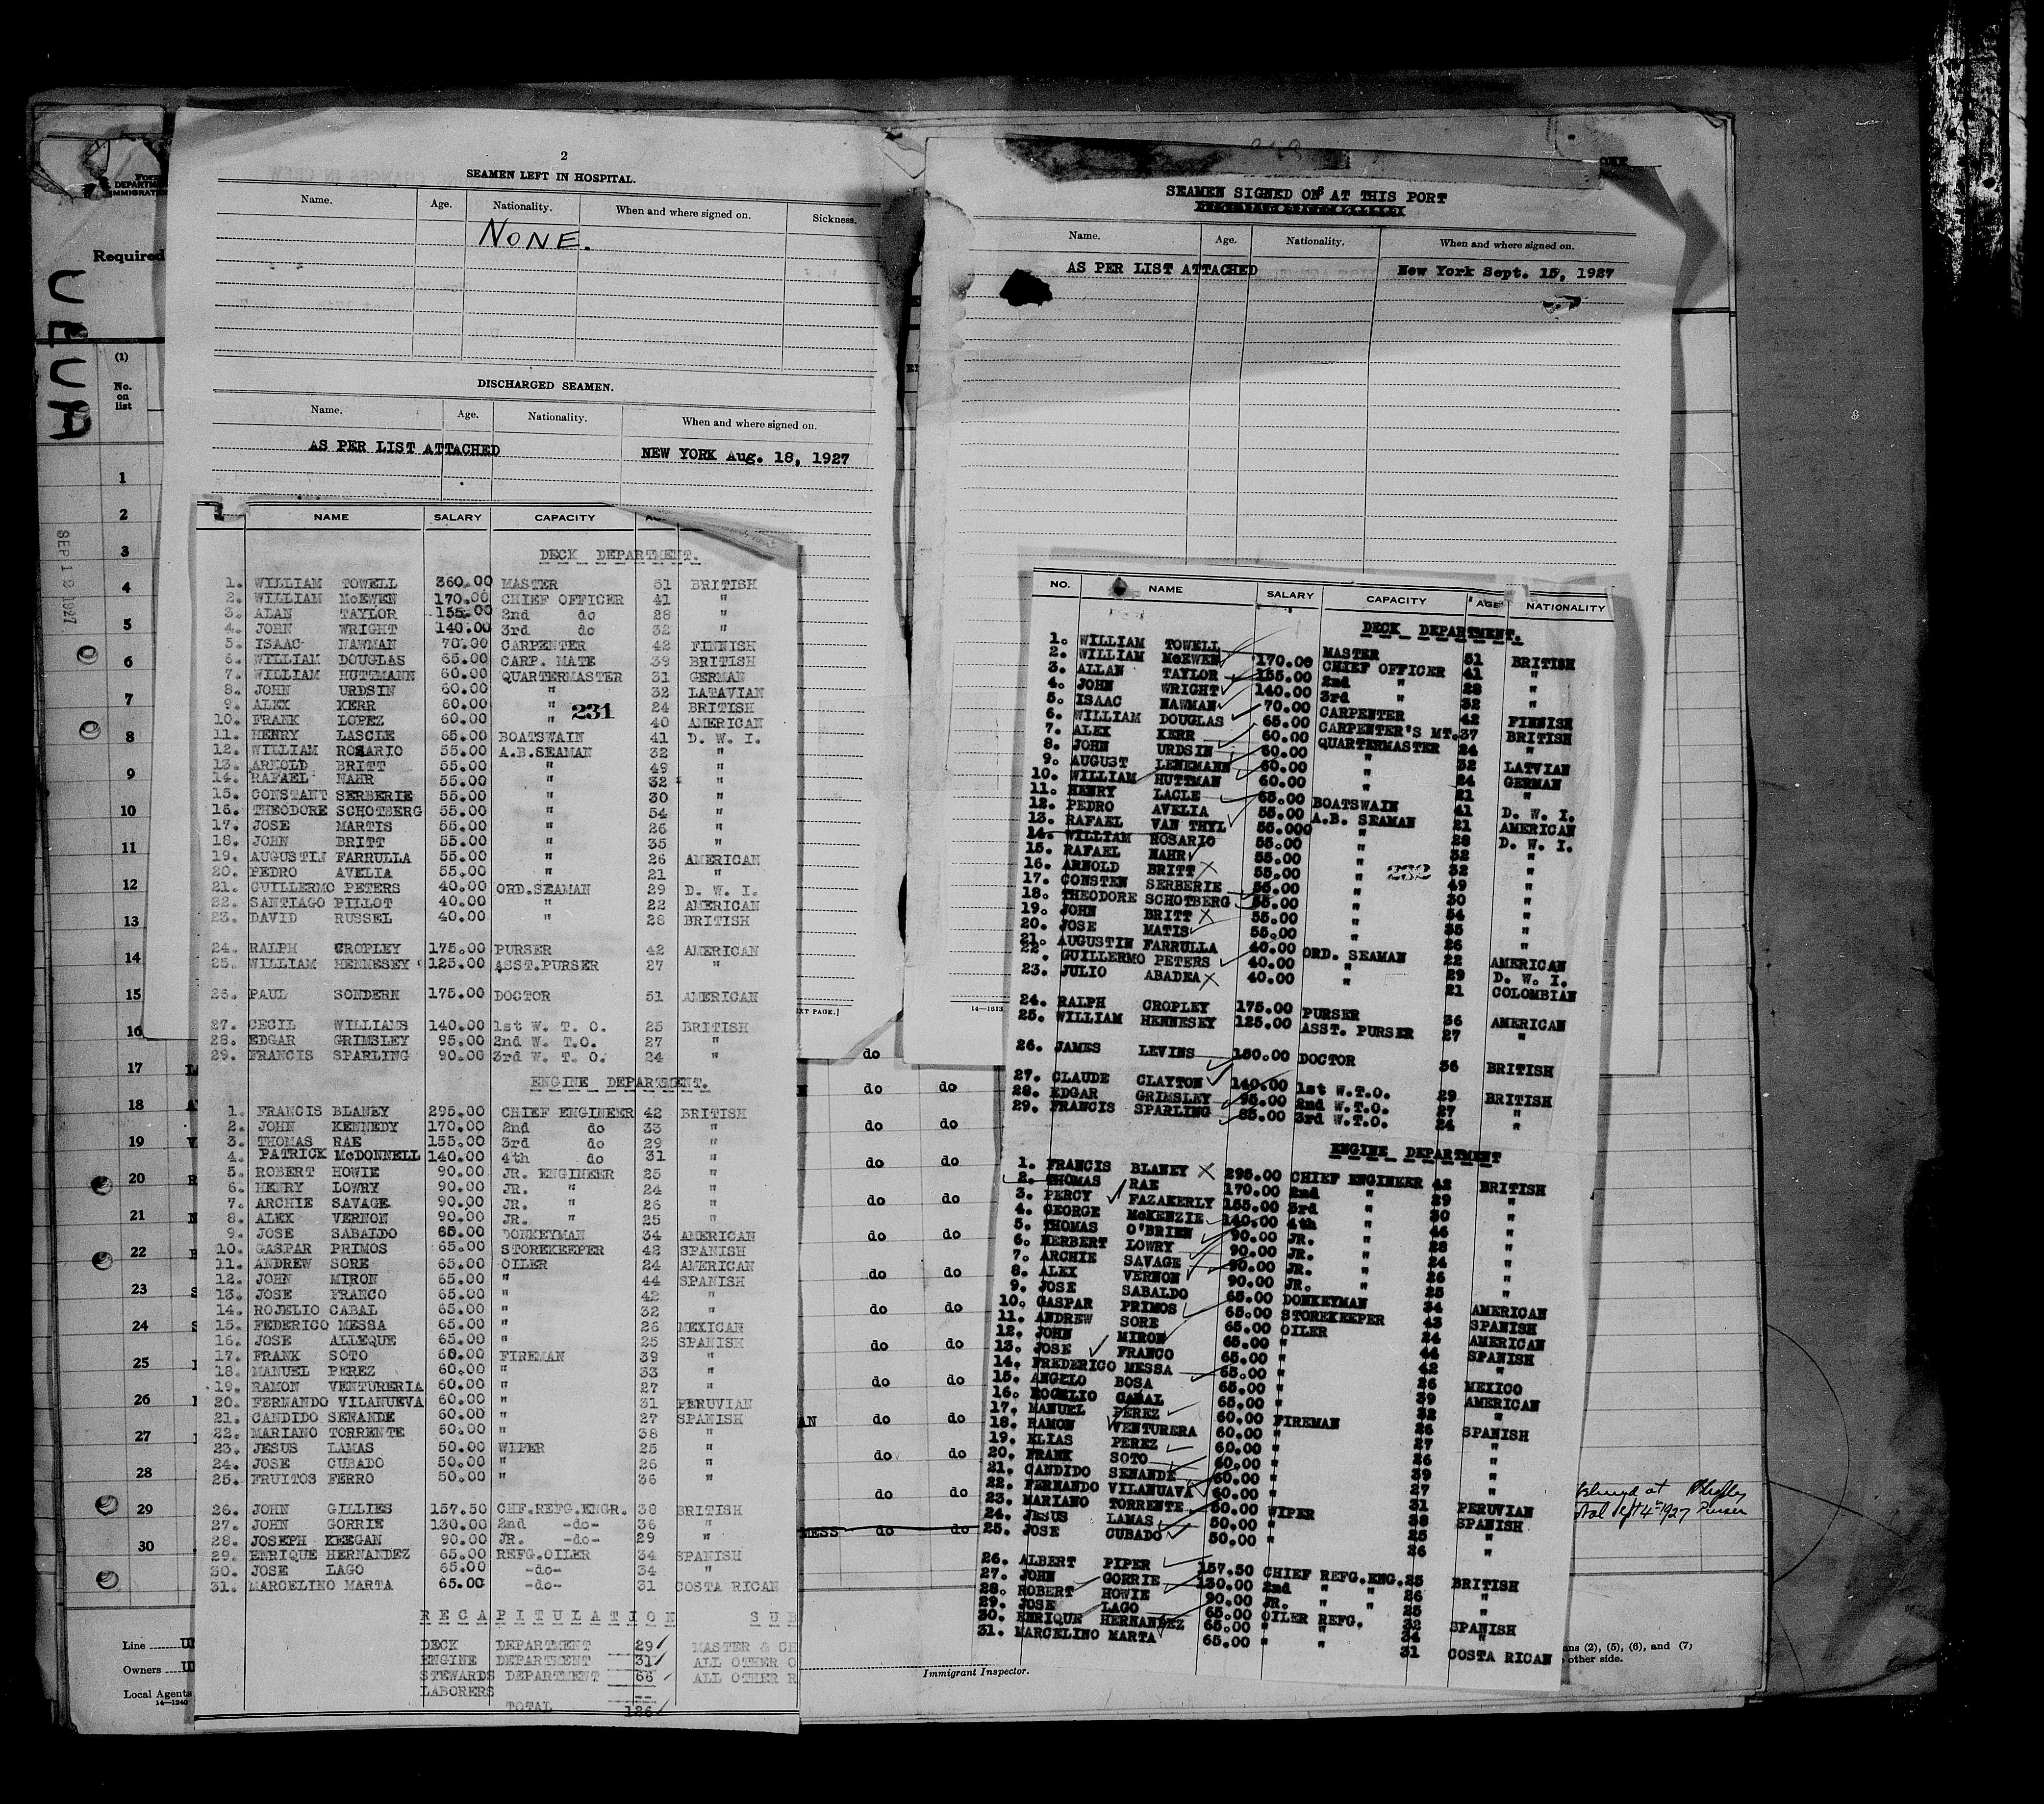 2
SEAMEN LEFT IN HOSPITAL.
Name. Age. Nationality. When and where signed on. Sickness.
NONE.
DISCHARGED SEAMEN.
Name. Age. Nationality. When and where signed on.
AS PER LIST ATTACHED NEW YORK Aug. 18, 1927
NAME SALARY CAPACITY
DECK DEPARTMENT.
1. WILLIAM TOWELL 360.00 MASTER 51 BRITISH
2. WILLIAM McEWEN 170.00 CHIEF OFFICER 41 "
3. ALAN TAYLOR 155.00 2nd do 28 "
4. JOHN WRIGHT 140.00 3rd do 32 "
5. ISAAC NAWMAN 70.00 CARPENTER 42 FINNISH
6. WILLIAM DOUGLAS 65.00 CARP. MATE 39 BRITISH
7. WILLIAM HUTTMANN 60.00 QUARTERMASTER 31 GERMAN
8. JOHN URDSIN 60.00 " 32 LATAVIAN
9. ALEX KERR 60.00 " 24 BRITISH
10. FRANK LOPEZ 60.00 " 40 AMERICAN
231
11. HENRY LASCLE 65.00 BOATSWAIN 41 D. W. I.
12. WILLIAM ROSARIO 55.00 A.B.SEAMAN 32 "
13. ARNOLD BRITT 55.00 " 49 "
14. RAFAEL NAHR 55.00 " 32 "
15. CONSTANT SERBERIE 55.00 " 30 "
16. THEODORE SCHOTBERG 55.00 " 54 "
17. JOSE MARTIS 55.00 " 26 "
18. JOHN BRITT 55.00 " 35 "
19. AUGUSTIN FARRULLA 55.00 " 26 AMERICAN
20. PEDRO AVELIA 55.00 " 21 "
21. GUILLERMO PETERS 40.00 ORD.SEAMAN 29 D. W. I.
22. SANTIAGO PILLOT 40.00 " 22 AMERICAN
23. DAVID RUSSEL 40.00 " 28 BRITISH
24. RALPH CROPLEY 175.00 PURSER 42 AMERICAN
25. WILLIAM HENNESEY 125.00 ASST.PURSER 27 "
26. PAUL SONDERN 175.00 DOCTOR 51 AMERICAN
27. CECIL WILLIAMS 140.00 1st W. T. O. 25 BRITISH
28. EDGAR GRIMSLEY 95.00 2nd W. T.O. 27 "
29. FRANCIS SPARLING 90.00 3rd W. T. O. 24 "
ENGINE DEPARTMENT.
1. FRANCIS BLANEY 295.00 CHIEF ENGINEER 42 BRITISH
2. JOHN KENNEDY 170.00 2nd do 33 "
3. THOMAS RAE 155.00 3rd do 29 "
4. PATRICK McDONNELL 140.00 4th do 31 "
5. ROBERT HOWIE 90.00 JR. ENGINEER 25 "
6. HENRY LOWRY 90.00 JR. " 24 "
7. ARCHIE SAVAGE 90.00 JR. " 26 "
8. ALEX VERNON 90.00 JR. " 25 "
9. JOSE SABALDO 65.00 DONKEYMAN 34 AMERICAN
10. GASPAR PRIMOS 65.00 STOREKEEPER 42 SPANISH
11. ANDREW SORE 65.00 OILER 24 AMERICAN
12. JOHN MIRON 65.00 " 44 SPANISH
13. JOSE FRANCO 65.00 " 42 "
14. ROJELIO CABAL 65.00 " 32 "
15. FEDERICO MESSA 65.00 " 26 MEXICAN
16. JOSE ALLEQUE 65.00 " 25 SPANISH
17. FRANK SOTO 60.00 FIREMAN 39 "
18. MANUEL PEREZ 60.00 " 33 "
19. RAMON VENTURERIA 60.00 " 27 "
20. FERNANDO VILANUEVA 60.00 " 31 PERUVIAN
21. CANDIDO SENANDE 60.00 " 27 SPANISH
22. MARIANO TORRENTE 50.00 " 38 "
23. JESUS LAMAS 50.00 WIPER 25 "
24. JOSE CUBADO 50.00 " 26 "
25. FRUITOS FERRO 50.00 " 36 "
26. JOHN GILLIES 157.50 CHF.REFG.ENGR. 38 BRITISH
27. JOHN GORRIE 130.00 2nd -do- 36 "
28. JOSEPH KEEGAN 90.00 JR. -do- 29 "
29. ENRIQUE HERNANDEZ 65.00 REFG.OILER 34 SPANISH
30. JOSE LAGO 65.00 -do- 34 "
31. MARCELINO MARTA 65.00 -do- 31 COSTA RICAN
RECAPITULATION SUB
DECK DEPARTMENT 29 MASTER & CH
ENGINE DEPARTMENT 31 ALL OTHER O
STEWARDS DEPARTMENT 66 ALL OTHER R
LABORERS --
TOTAL 126
SEAMEN SIGNED ON AT THIS PORT
Name. Age. Nationality. When and where signed on.
AS PER LIST ATTACHED New York Sept. 15, 1927
NO. NAME SALARY CAPACITY AGE NATIONALITY
DECK DEPARTMENT.
1. WILLIAM TOWELL MASTER 51 BRITISH
2. WILLIAM McEWEN 170.00 CHIEF OFFICER 41 "
3. ALLAN TAYLOR 155.00 2nd " 28 "
4. JOHN WRIGHT 140.00 3rd " 32 "
5. ISAAC NAWMAN 70.00 CARPENTER 42 FINNISH
6. WILLIAM DOUGLAS 65.00 CARPENTER'S MT. 37 BRITISH
7. ALEX KERR 60.00 QUARTERMASTER 24 "
8. JOHN URDSIN 60.00 " 32 LATVIAN
9. AUGUST LENEMANN 60.00 " 24 GERMAN
10. WILLIAM HUTTMAN 60.00 " 21 "
11. HENRY LACLE 65.00 BOATSWAIN 41 D. W. I.
12. PEDRO AVELIA 55.00 A.B. SEAMAN 21 AMERICAN
13. RAFAEL VAN THYL 55.000 " 28 D. W. I.
14. WILLIAM ROSARIO 55.00 " 32 "
15. RAFAEL NAHR 55.00 " 32 "
232
16. ARNOLD BRITT 55.00 " 49 "
17. CONSTEN SERBERIE 55.00 " 30 "
18. THEODORE SCHOTBERG 55.00 " 54 "
19. JOHN BRITT 55.00 " 35 "
20. JOSE MATIS 55.00 " 26 "
21. AUGUSTIN FARRULLA 40.00 ORD. SEAMAN 22 AMERICAN
22. GUILLERMO PETERS 40.00 " 29 D. W. I.
23. JULIO ABADEA 40.00 " 21 COLOMBIAN
24. RALPH CROPLEY 175.00 PURSER 36 AMERICAN
25. WILLIAM HENNESEY 125.00 ASST. PURSER 27 "
26. JAMES LEVINS 150.00 DOCTOR 36 BRITISH
27. CLAUDE CLAYTON 140.00 1st W.T.O. 29 BRITISH
28. EDGAR GRIMSLEY 95.00 2nd W.T.O. 27 "
29. FRANCIS SPARLING 85.00 3rd W.T.O. 24 "
ENGINE DEPARTMENT
1. FRANCIS BLANEY 295.00 CHIEF ENGINEER 42 BRITISH
2. THOMAS RAE 170.00 2nd " 29 "
3. PERCY FAZAKERLY 155.00 3rd " 30 "
4. GEORGE McKENZIE 140.00 4th " 46 "
5. THOMAS O'BRIEN 90.00 JR. " 28 "
6. HERBERT LOWRY 90.00 JR. " 24 "
7. ARCHIE SAVAGE 90.00 JR. " 26 "
8. ALEX VERNON 90.00 JR. " 25 "
9. JOSE SABALDO 65.00 DONKEYMAN 34 AMERICAN
10. GASPAR PRIMOS 65.00 STOREKEEPER 43 SPANISH
11. ANDREW SORE 65.00 OILER 24 AMERICAN
12. JOHN MIRON 65.00 " 44 SPANISH
13. JOSE FRANCO 65.00 " 42 "
14. FREDERICO MESSA 65.00 " 26 MEXICO
15. ANGELO BOSA 65.00 " 39 AMERICAN
16. ROGELIO CABAL 65.00 " 32 "
17. MANUEL PEREZ 60.00 FIREMAN 26 SPANISH
18. RAMON VENTURERA 60.00 " 27 "
19. ELIAS PEREZ 60.00 " 26 "
20. FRANK SOTO 60.00 " 39 "
21. CANDIDO SENANDE 60.00 " 27 "
22. FERNANDO VILANUAVA 60.00 " 31 PERUVIAN
23. MARIANO TORRENTE 50.00 WIPER 38 SPANISH
24. JESUS LAMAS 50.00 " 25 "
25. JOSE CUBADO 50.00 " 26 "
26. ALBERT PIPER 157.50 CHIEF REFG.ENG. 25 BRITISH
27. JOHN GORRIE 130.00 2nd " " 26 "
28. ROBERT HOWIE 90.00 JR. " " 25 "
29. JOSE LAGO 65.00 OILER REFG. 32 SPANISH
30. ENRIQUE HERNANDEZ 65.00 " " 34 "
31. MARCELINO MARTA 65.00 " " 31 COSTA RICAN
Required
(1)
No. on list
1
2
3
4
5
6
7
8
9
10
11
12
13
14
15
16
17
18
19
20
21
22
23
24
25
26
27
28
29
30
do do
Line
Owners
Local Agents
14—1240
14—1613
Immigrant Inspector.
other side.